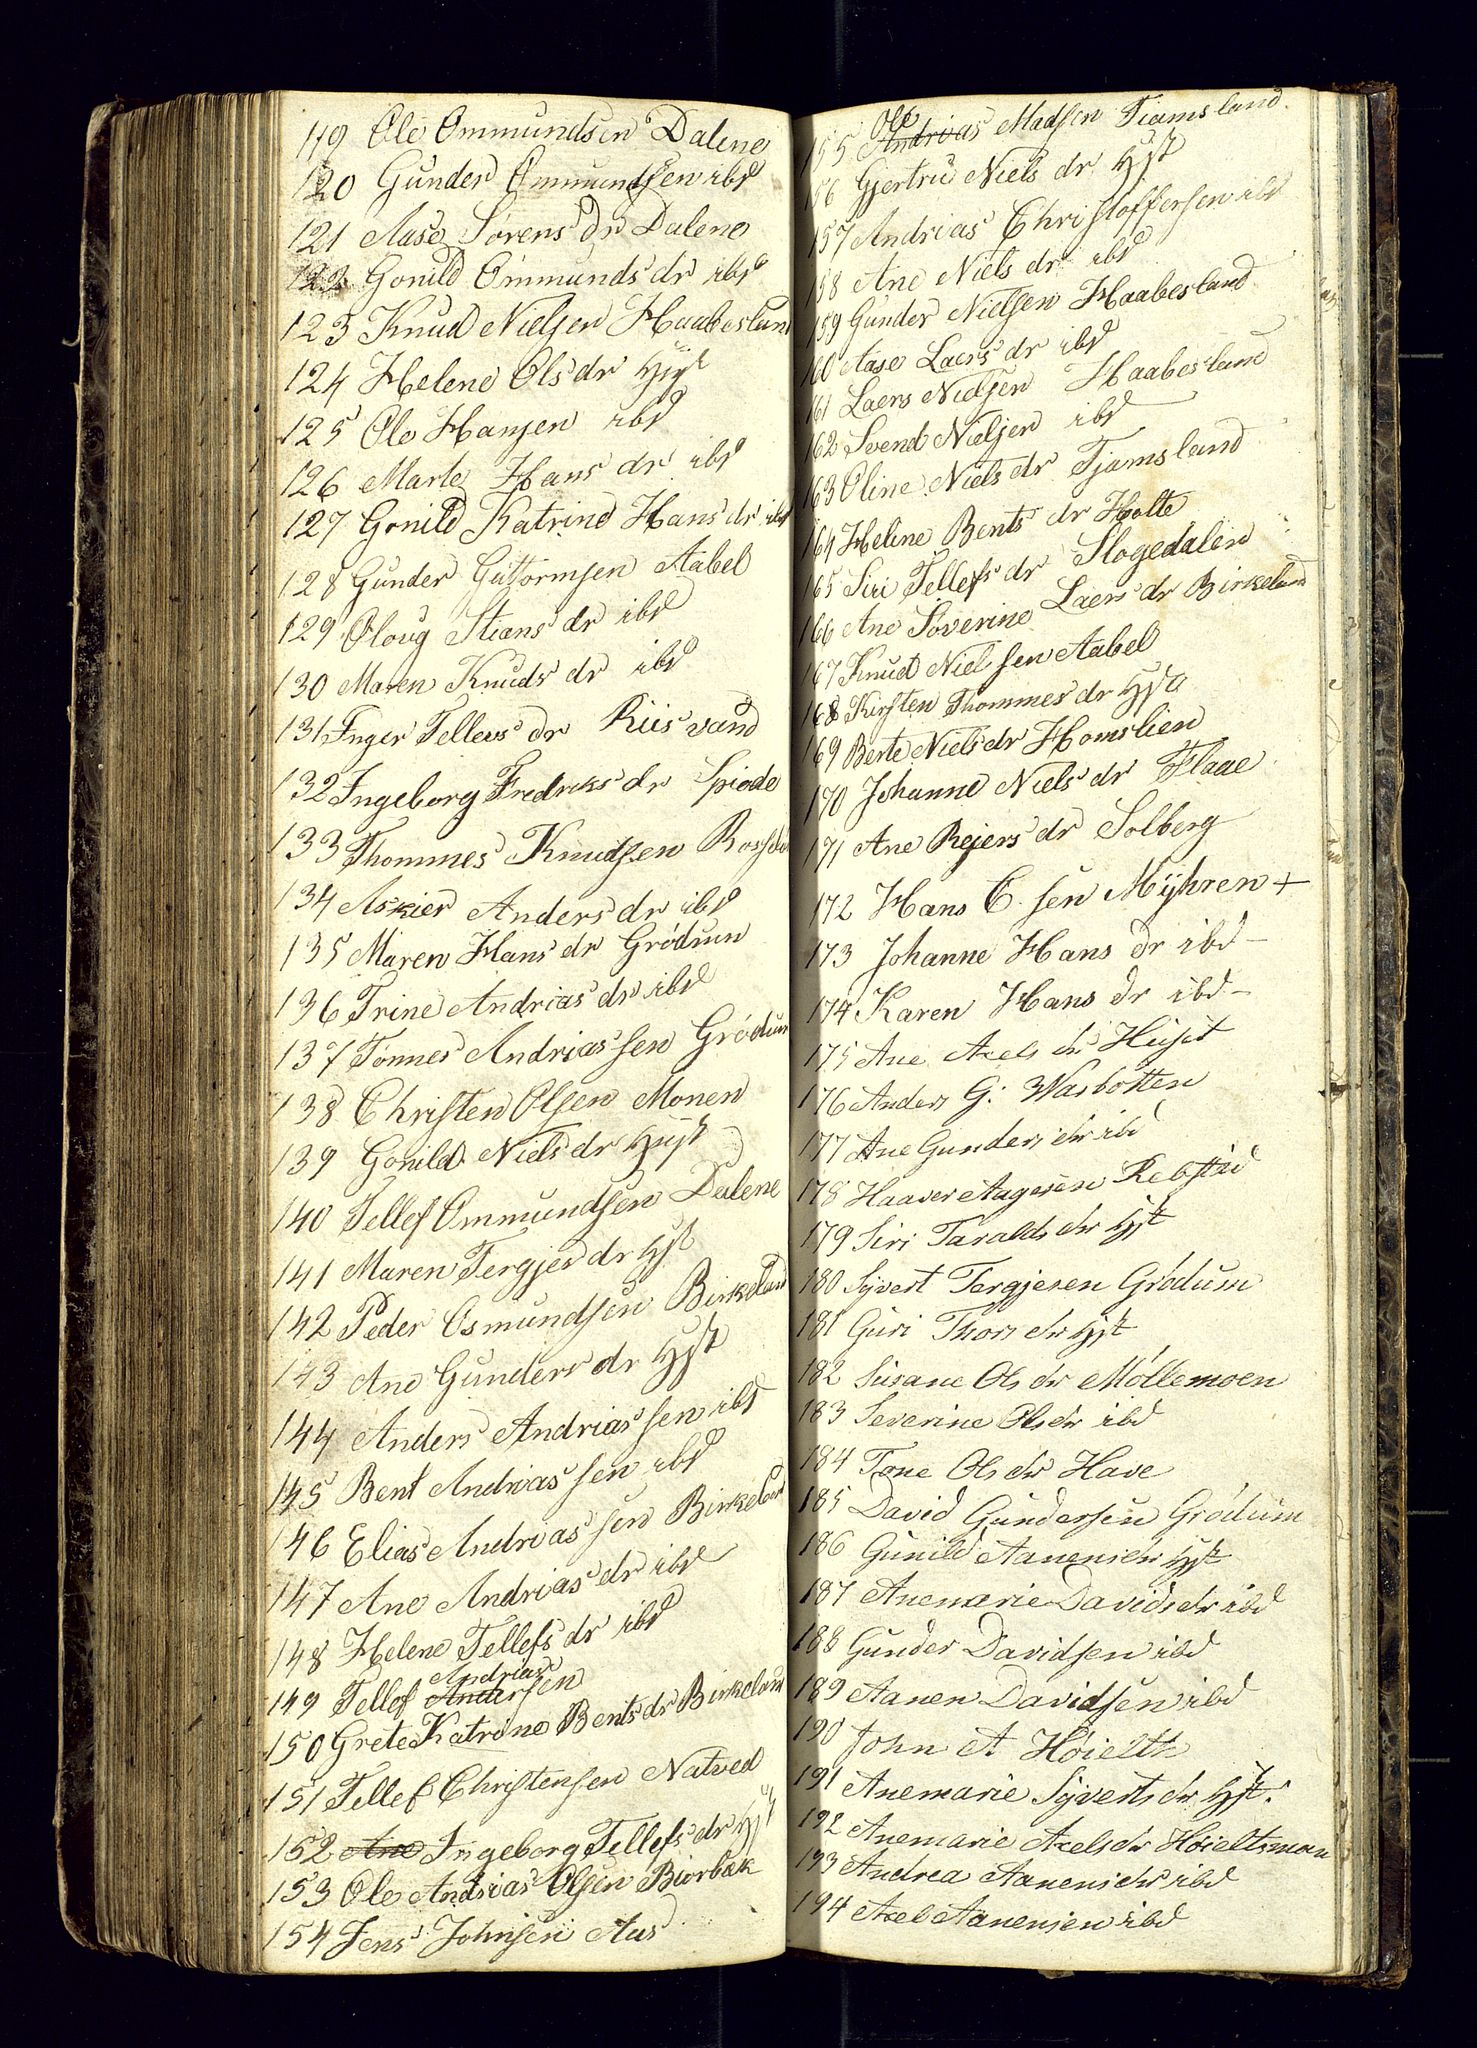 119 Ole Ommundsen Dalene
120 Gunder Ommundsen ibd
121 Aase Sørens dr Dalene
122 Gonild Ommunds dr ibd
123 Knud Nielsen Haabesland
124 Helene Ols dr Hyst
125 Ole Hansen ibd
126 Marte Hans dr ibd
127 Gonild Katrine Hans dr ibd
128 Gunder Guttormsen Aabel
129 Oloug Stians dr ibd
130 Maren Knuds dr ibd
131 Inger Tellevs dr Riisvand
132 Ingeborg Fredriks dr Spiode
133 Thommes Knudsen
134 Askier Anders dr ibd
135 Maren Hans dr Grödum
136 Trine Andrias dr ibd
137 Tönnes Andriassen Grödum
138 Christen Olsen Monen
139 Gonild Niels dr Hyst
140 Tellef Ommundsen Dalene
141 Maren Tergjes dr Hyst
142 Peder Osmundsen Birkeland
143 Ane Gunders dr Hyst
144 Anders Andriassen ibd
145 Bent Andriassen ibd
146 Elias Andriassen Birkeland
147 Ane Andrias dr ibd
148 Helene Tellefs dr ibd
Andrias
149 Tellef Andersen
150 Grete Katrine Bents dr Birkeland
151 Tellef Christensen Natved
152 Ane Ingeborg Tellefs dr Hyst
153 Ole Andrias Olsen Biorbæk
154 Jens Johnsen Aas
Ole
155 Andrias Madsen Tiamsland
156 Gjertru Niels dr Hyst
157 Andrias Christoffersen ibd
158 Ane Niels dr ibd
159 Gunder Nielsen Haabesland
160 Aase Laers dr ibd
161 Laers Nielsen Haabesland
162 Svend Nielsen ibd
163 Oline Niels dr Tjamsland
164 Heline Bents dr Holte
165 Siri Tellefs dr Slogedalen
166 Ane Soverine Laers dr Birkeland
167 Knud Nielsen Aabel
168 Kirsten Thommes dr Hyst
169 Berte Niels dr Homslien
170 Johanne Niels dr Flaae
171 Ane Rejers dr Solberg
172 Hans C. sen Mÿhren +
173 Johanne Hans dr ibd -
174 Karen Hans dr ibd -
175 Ane Axels dr
176 Anders G: Wasbotten
177 Ane Gunders dr ibd
178 Haaver Aagesen Rebstad
179 Siri Taralds dr Hyst
180 Syvert Tergjesen Grödum
181 Guri Thors dr Hyst
182 Susane Ols dr Möllemoen
183 Severine Ols dr ibd
184 Tone Ols dr Have
185 David Gundersen Grödum
186 Gunild Aanens dr Hyst
187 Anemarie Davids dr ibd
188 Gunder Davidsen ibd
189 Aanen Davidsen ibd
190 John A Höielth
191 Anemarie Syverts dr Hyst.
192 Anemarie Axels dr Höieltsmoen
193 Andrea Aanens dr ibd
194 Axel Aanensen ibd